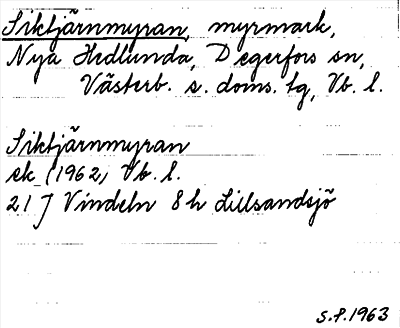 Siktjärnmyran, myrmark,
Nya Hedlunda, Degerfors sn,
Västerb. s. doms. tg, Vb. l.
Siktjärnmyran
ek (1962) Vb. l.
21 J Vindeln 8 h Lillsandsjö
S.P. 1963